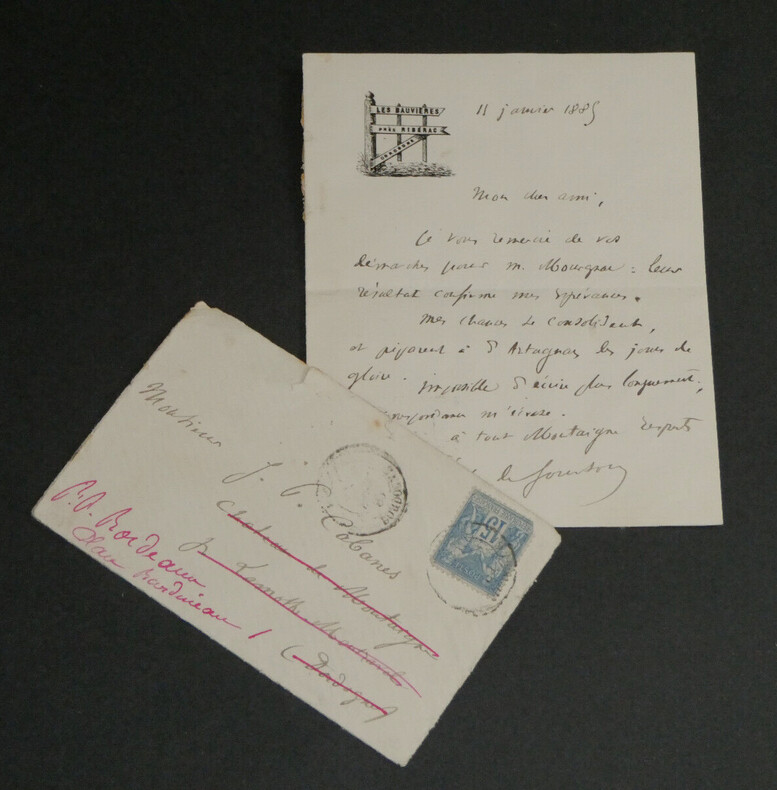 LES BAUVIÈRES
PRÈS RIBÉRAC
DORDOGNE
11 janvier 1885
Mon cher ami,
Je vous remercie de vos
démarches pour M. Mourgue : leur
résultat confirme mes espérances.
Mes chances se consolident,
et préparent à d'Artagnan les jours de
gloire. Impossible d'écrire plus longuement,
correspondance m'écrase.
à tout Montaigne respects
de
Monsieur
J. C. Cabanes
Chateau de Montaigne
p. Lamothe Montravel
(Dordogne)
P.P. Bordeaux
Place
15